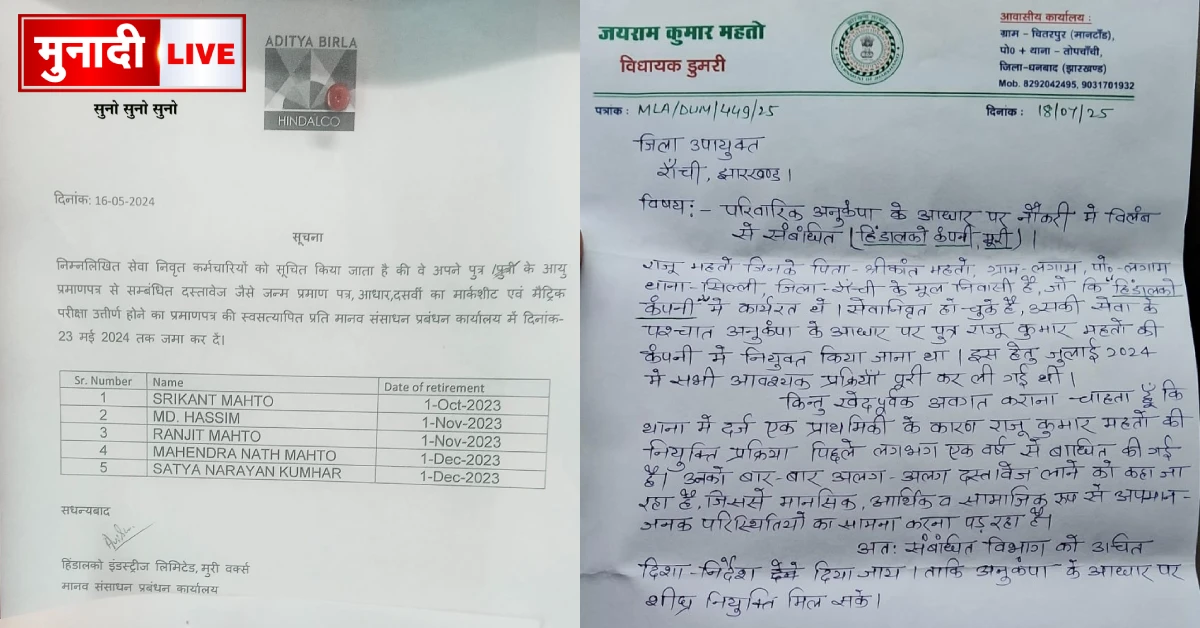 मुनादी LIVE
सुनो सुनो सुनो
ADITYA BIRLA
HINDALCO
दिनांक: 16-05-2024
सूचना
निम्नलिखित सेवा निवृत कर्मचारियों को सूचित किया जाता है की वे अपने पुत्र /पुत्री के आयु
प्रमाणपत्र से सम्बंधित दस्तावेज जैसे जन्म प्रमाण पत्र,आधार,दसवीं का मार्कशीट एवं मैट्रिक
परीक्षा उत्तीर्ण होने का प्रमाणपत्र की स्वसत्यापित प्रति मानव संसाधन प्रबंधन कार्यालय में दिनांक-
23 मई 2024 तक जमा कर दें।
Sr. Number Name Date of retirement
1 SRIKANT MAHTO 1-Oct-2023
2 MD. HASSIM 1-Nov-2023
3 RANJIT MAHTO 1-Nov-2023
4 MAHENDRA NATH MAHTO 1-Dec-2023
5 SATYA NARAYAN KUMHAR 1-Dec-2023
सधन्यबाद
हिंडालको इंडस्ट्रीज लिमिटेड, मुरी वर्क्स
मानव संसाधन प्रबंधन कार्यालय
जयराम कुमार महतो
विधायक डुमरी
आवासीय कार्यालय :
ग्राम - चितरपुर (मानटाँड),
पो० + थाना - तोपचाँची,
जिला-धनबाद (झारखण्ड)
Mob. 8292042495, 9031701932
पत्रांक : MLA/DUM/449/25
दिनांक : 18/07/25
जिला उपायुक्त
राँची, झारखण्ड।
विषय:- परिवारिक अनुकंपा के आधार पर नौकरी मे विलंब
से संबंधित (हिंडालको कंपनी, मूरी)।
राजू महतो जिनके पिता - श्रीकांत महतो, ग्राम-लगाम, पो०-लगाम
थाना-सिल्ली, जिला-राँची के मूल निवासी है, जो कि "हिंडालको
कंपनी" में कार्यरत थे। सेवानिवृत हो चुके है, उसकी सेवा के
पश्चात अनुकंपा के आधार पर पुत्र राजू कुमार महतो की
कंपनी में नियुक्त किया जाना था। इस हेतु जुलाई 2024
मे सभी आवश्यक प्रक्रियाँ पूरी कर ली गई थी।
किन्तु खेदपूर्वक अवगत कराना चाहता हूँ कि
थाना में दर्ज एक प्राथमिकी के कारण राजू कुमार महतो की
नियुक्ति प्रक्रिया पिछले लगभग एक वर्ष से बाधित की गई
है। उनको बार-बार अलग-अलग दस्तावेज लाने को कहा जा
रहा है, जिससे मानसिक, आर्थिक व सामाजिक रूप से अपमान-
जनक परिस्थितियों का सामना करना पड़ रहा है।
अतः संबंधित विभाग को उचित
दिशा-निर्देश दिया जाय। ताकि अनुकंपा के आधार पर
शीघ्र नियुक्ति मिल सके।